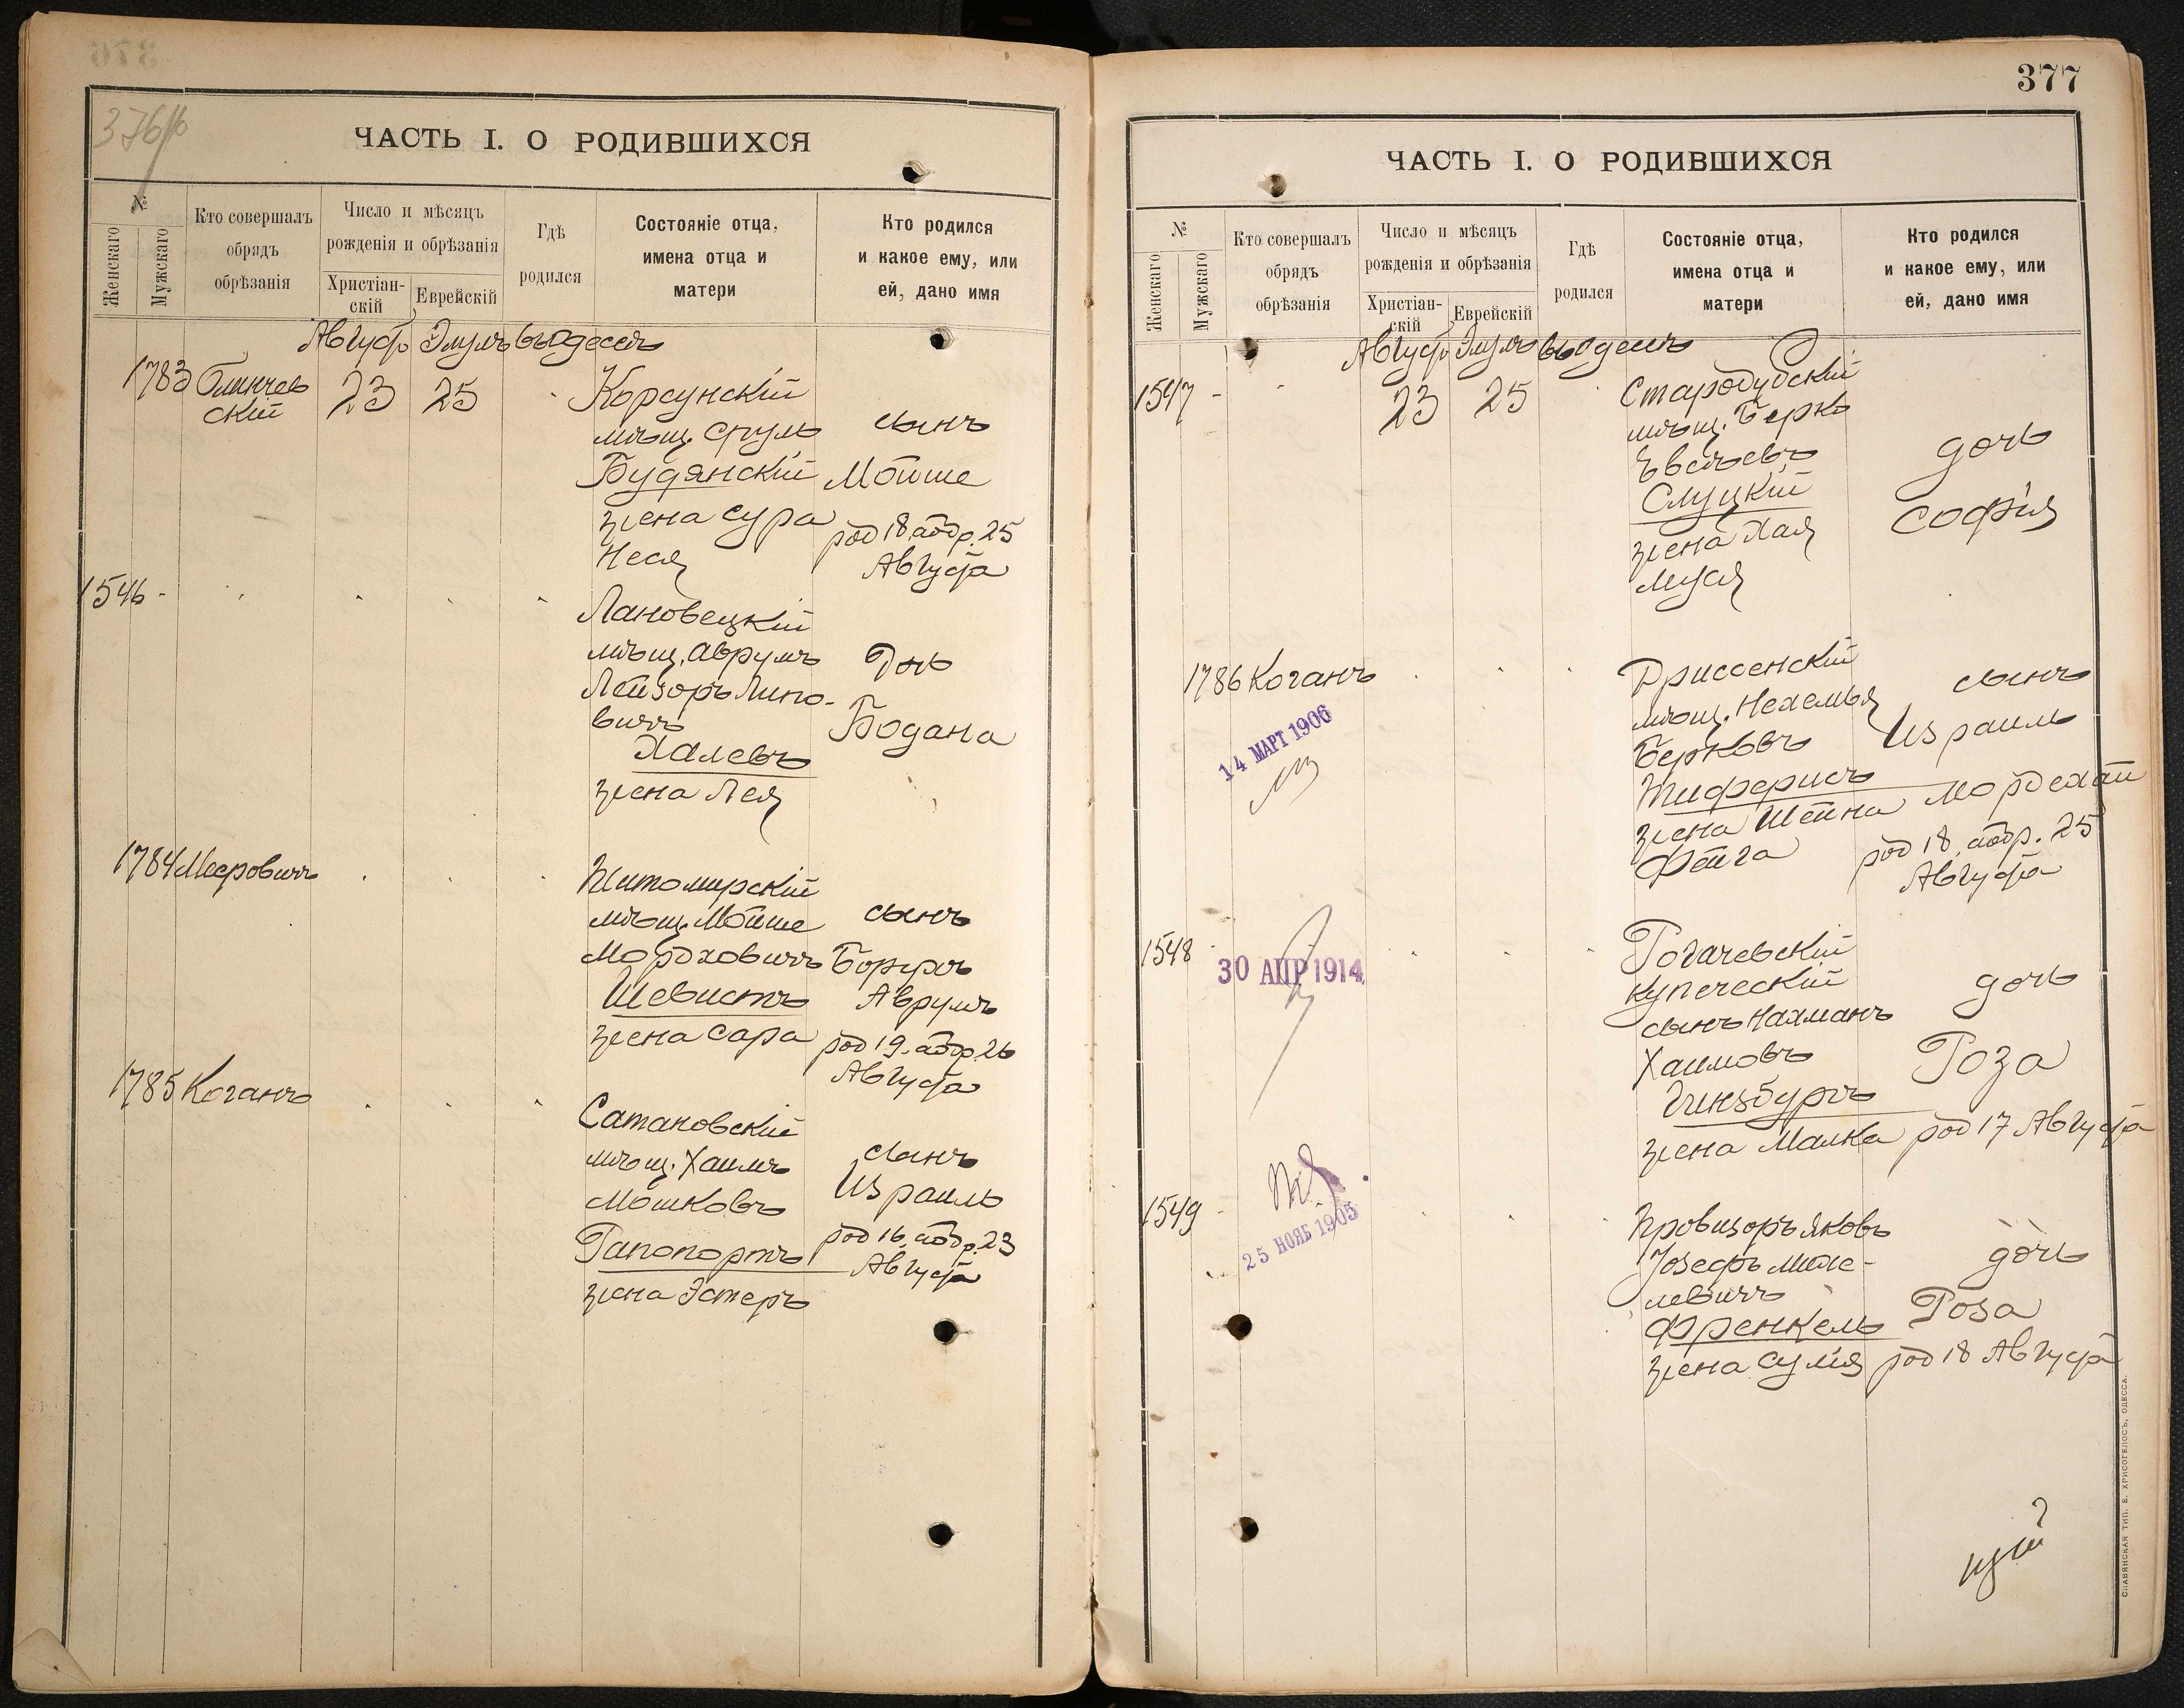 376 об
ЧАСТЬ I. О РОДИВШИХСЯ
№
Женскаго
Мужскаго
Кто совершалъ
обрядъ
обрѣзанія
Число и мѣсяцъ
рожденія и обрѣзанія
Христіан-
скій
Еврейскій
Гдѣ
родился
Состояніе отца,
имена отца и
матери
Кто родился
и какое ему, или
ей, дано имя
Август Элулъ въ Одессѣ
1783
Блинчев
скій
23
25
Корсунскій
мѣщ. Сруль
Будянскій
жена Сура
Неся
сынъ
Мойше
род 18. обр. 25
Августа
1546 -
Лановецкій
мѣщ. Аврумъ
Лейзоръ Липо-
вичъ
Халевъ
жена Лея
Дочь
Богдана
1784
Мееровичъ
Житомирскій
мѣщ. Мойше
Мордховичъ
Шевистъ
жена Сара
сынъ
Борухъ
Аврумъ
род 19. обр. 26
Августа
1785
Коганъ
Сатановскій
мѣщ. Хаимъ
Мошковъ
Рапопортъ
жена Эстеръ
сынъ
Израиль
род 16. обр. 23
Августа
377
ЧАСТЬ I. О РОДИВШИХСЯ
№
Женскаго
Мужскаго
Кто совершалъ
обрядъ
обрѣзанія
Число и мѣсяцъ
рожденія и обрѣзанія
Христіан-
скій
Еврейскій
Гдѣ
родился
Состояніе отца,
имена отца и
матери
Кто родился
и какое ему, или
ей, дано имя
Август Элулъ въ Одессѣ
1547 -
23
25
Стародубскій
мѣщ. Берко
Евсѣевъ
Слуцкій
жена Хая
Муся
дочь
София
1786
Коганъ
14 МАРТ 1906
Дриссенскій
мѣщ. Нехемья
Берковъ
Тиферисъ
жена Шейна
Фейга
сынъ
Израиль
Мордехай
род 18. обр. 25
Августа
1548
30 АПР 1914
Рогачевскій
купеческій
сынъ Нахманъ
Хаимовъ
Гинзбургъ
жена Малка
дочь
Роза
род 17 Августа
1549 -
25 НОЯБ 1905
Провизоръ Яковъ
Іозефъ
левичъ
Френкель
жена Сулія
дочь
Роза
род 18 Августа
СЛАВЯНСКАЯ ТИП. Е. ХРИСОГЕЛОСЪ, ОДЕССА.